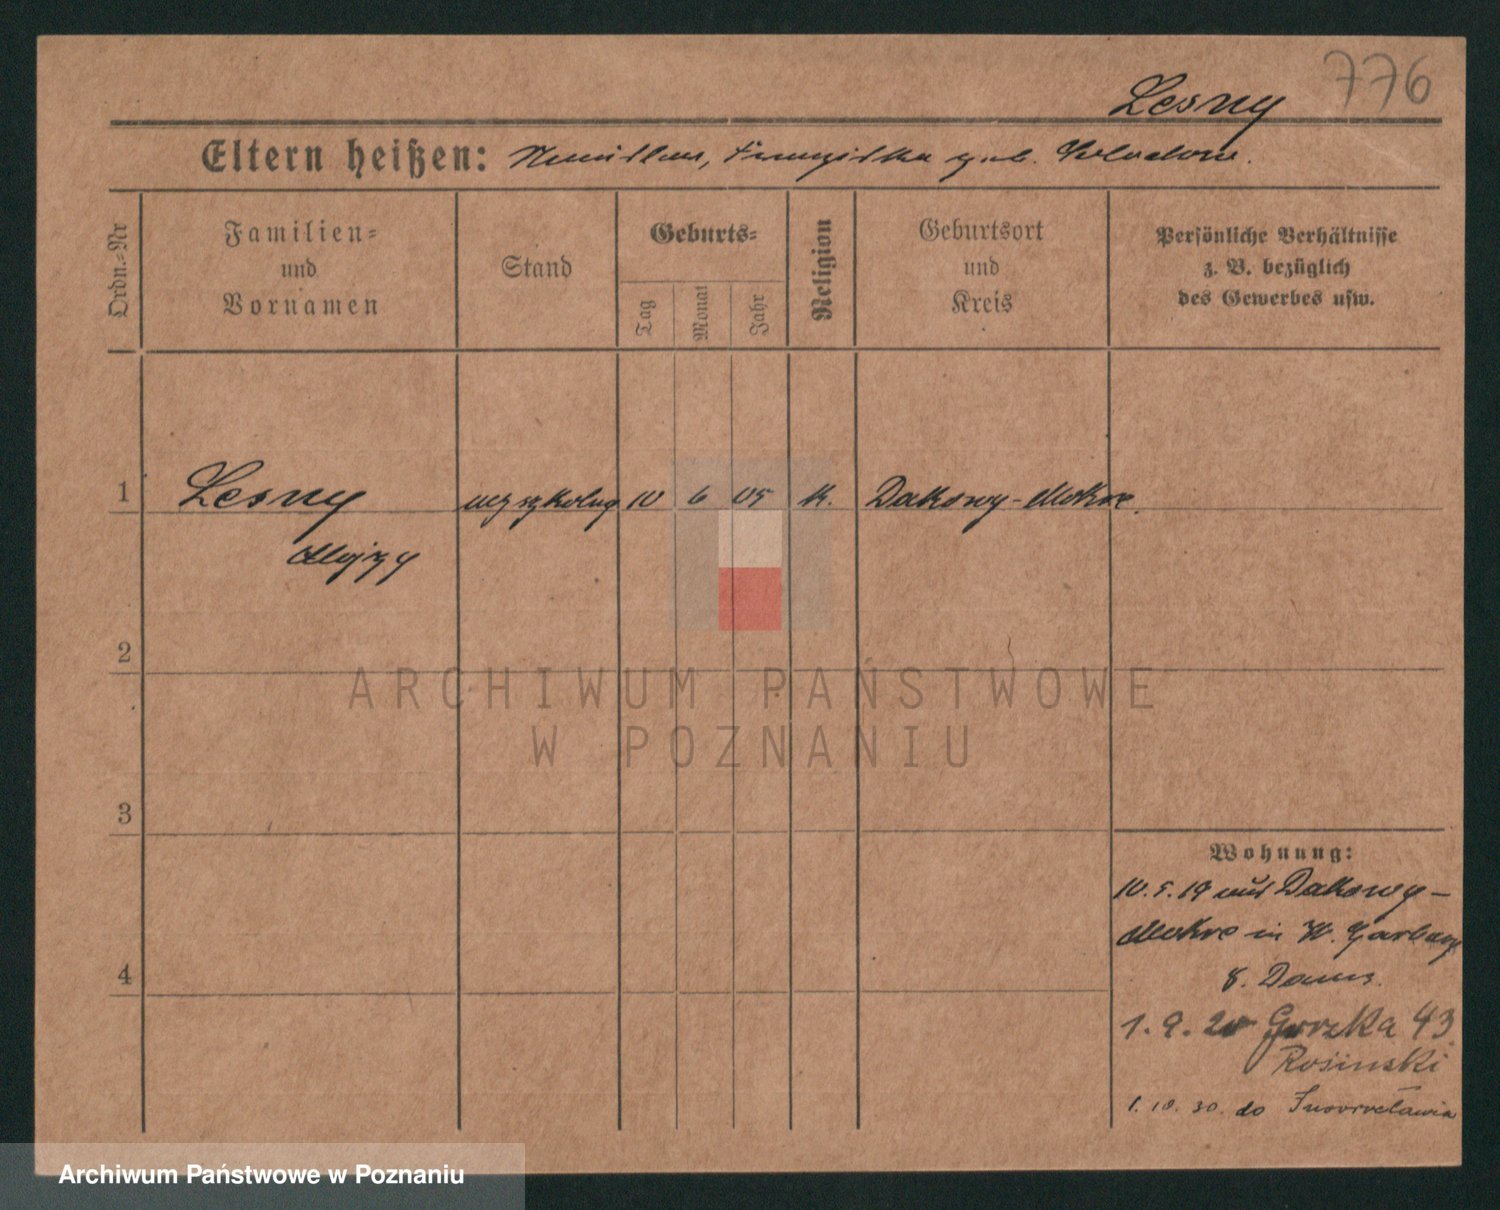 776
Lesny
Eltern heißen: Franziska geb.
Ordn.=Nr
Familien=
und
Vornamen
Stand
Geburts=
Tag
Monat
Jahr
Religion
Geburtsort
und
Kreis
Persönliche Verhältnisse
z. B. bezüglich
des Gewerbes usw.
1 Lesny 10 6 05 K. Dakowy-Mokre.
Alojzy
2
ARCHIWUM PAŃSTWOWE
W POZNANIU
3
Wohnung:
10.5.19 aus Dakowy-
Mokre in W. Garbary
4
8.
1.9.20 Gorzka 43
Rosinski
1.10.30. do Inowrocławia
Archiwum Państwowe w Poznaniu